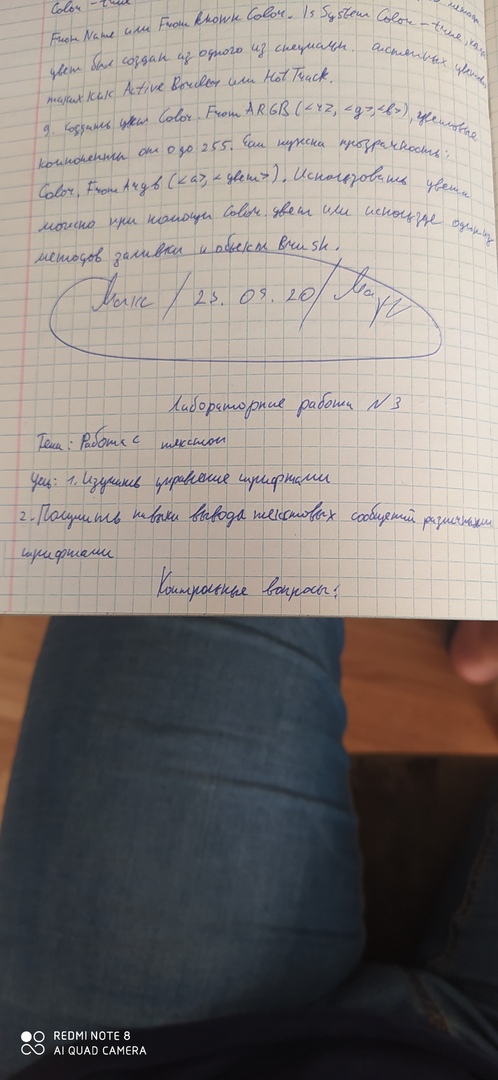 Color - true
From Name или From Known Color. Is System Color - true, если
цвет был создан из одного из специальн. системных цветов
таких как Active Border или Hot Track.
9. Создать цвет Color. From ARGB (<r>, <g>, <b>), цветовые
компоненты от 0 до 255. Если нужна прозрачность:
Color. From Argb (<a>, <цвет>). Использовать цвета
можно при помощи Color. цвет или использ один из
методов заливки и объект Brush.
/ 23. 09. 20 /
Лабораторные работа N 3
Тема: Работа с текстом
Цель: 1. Изучить управление шрифтами
2. Получить навыки вывода текстовых сообщений различными
шрифтами
Контрольные вопросы:
REDMI NOTE 8
AI QUAD CAMERA